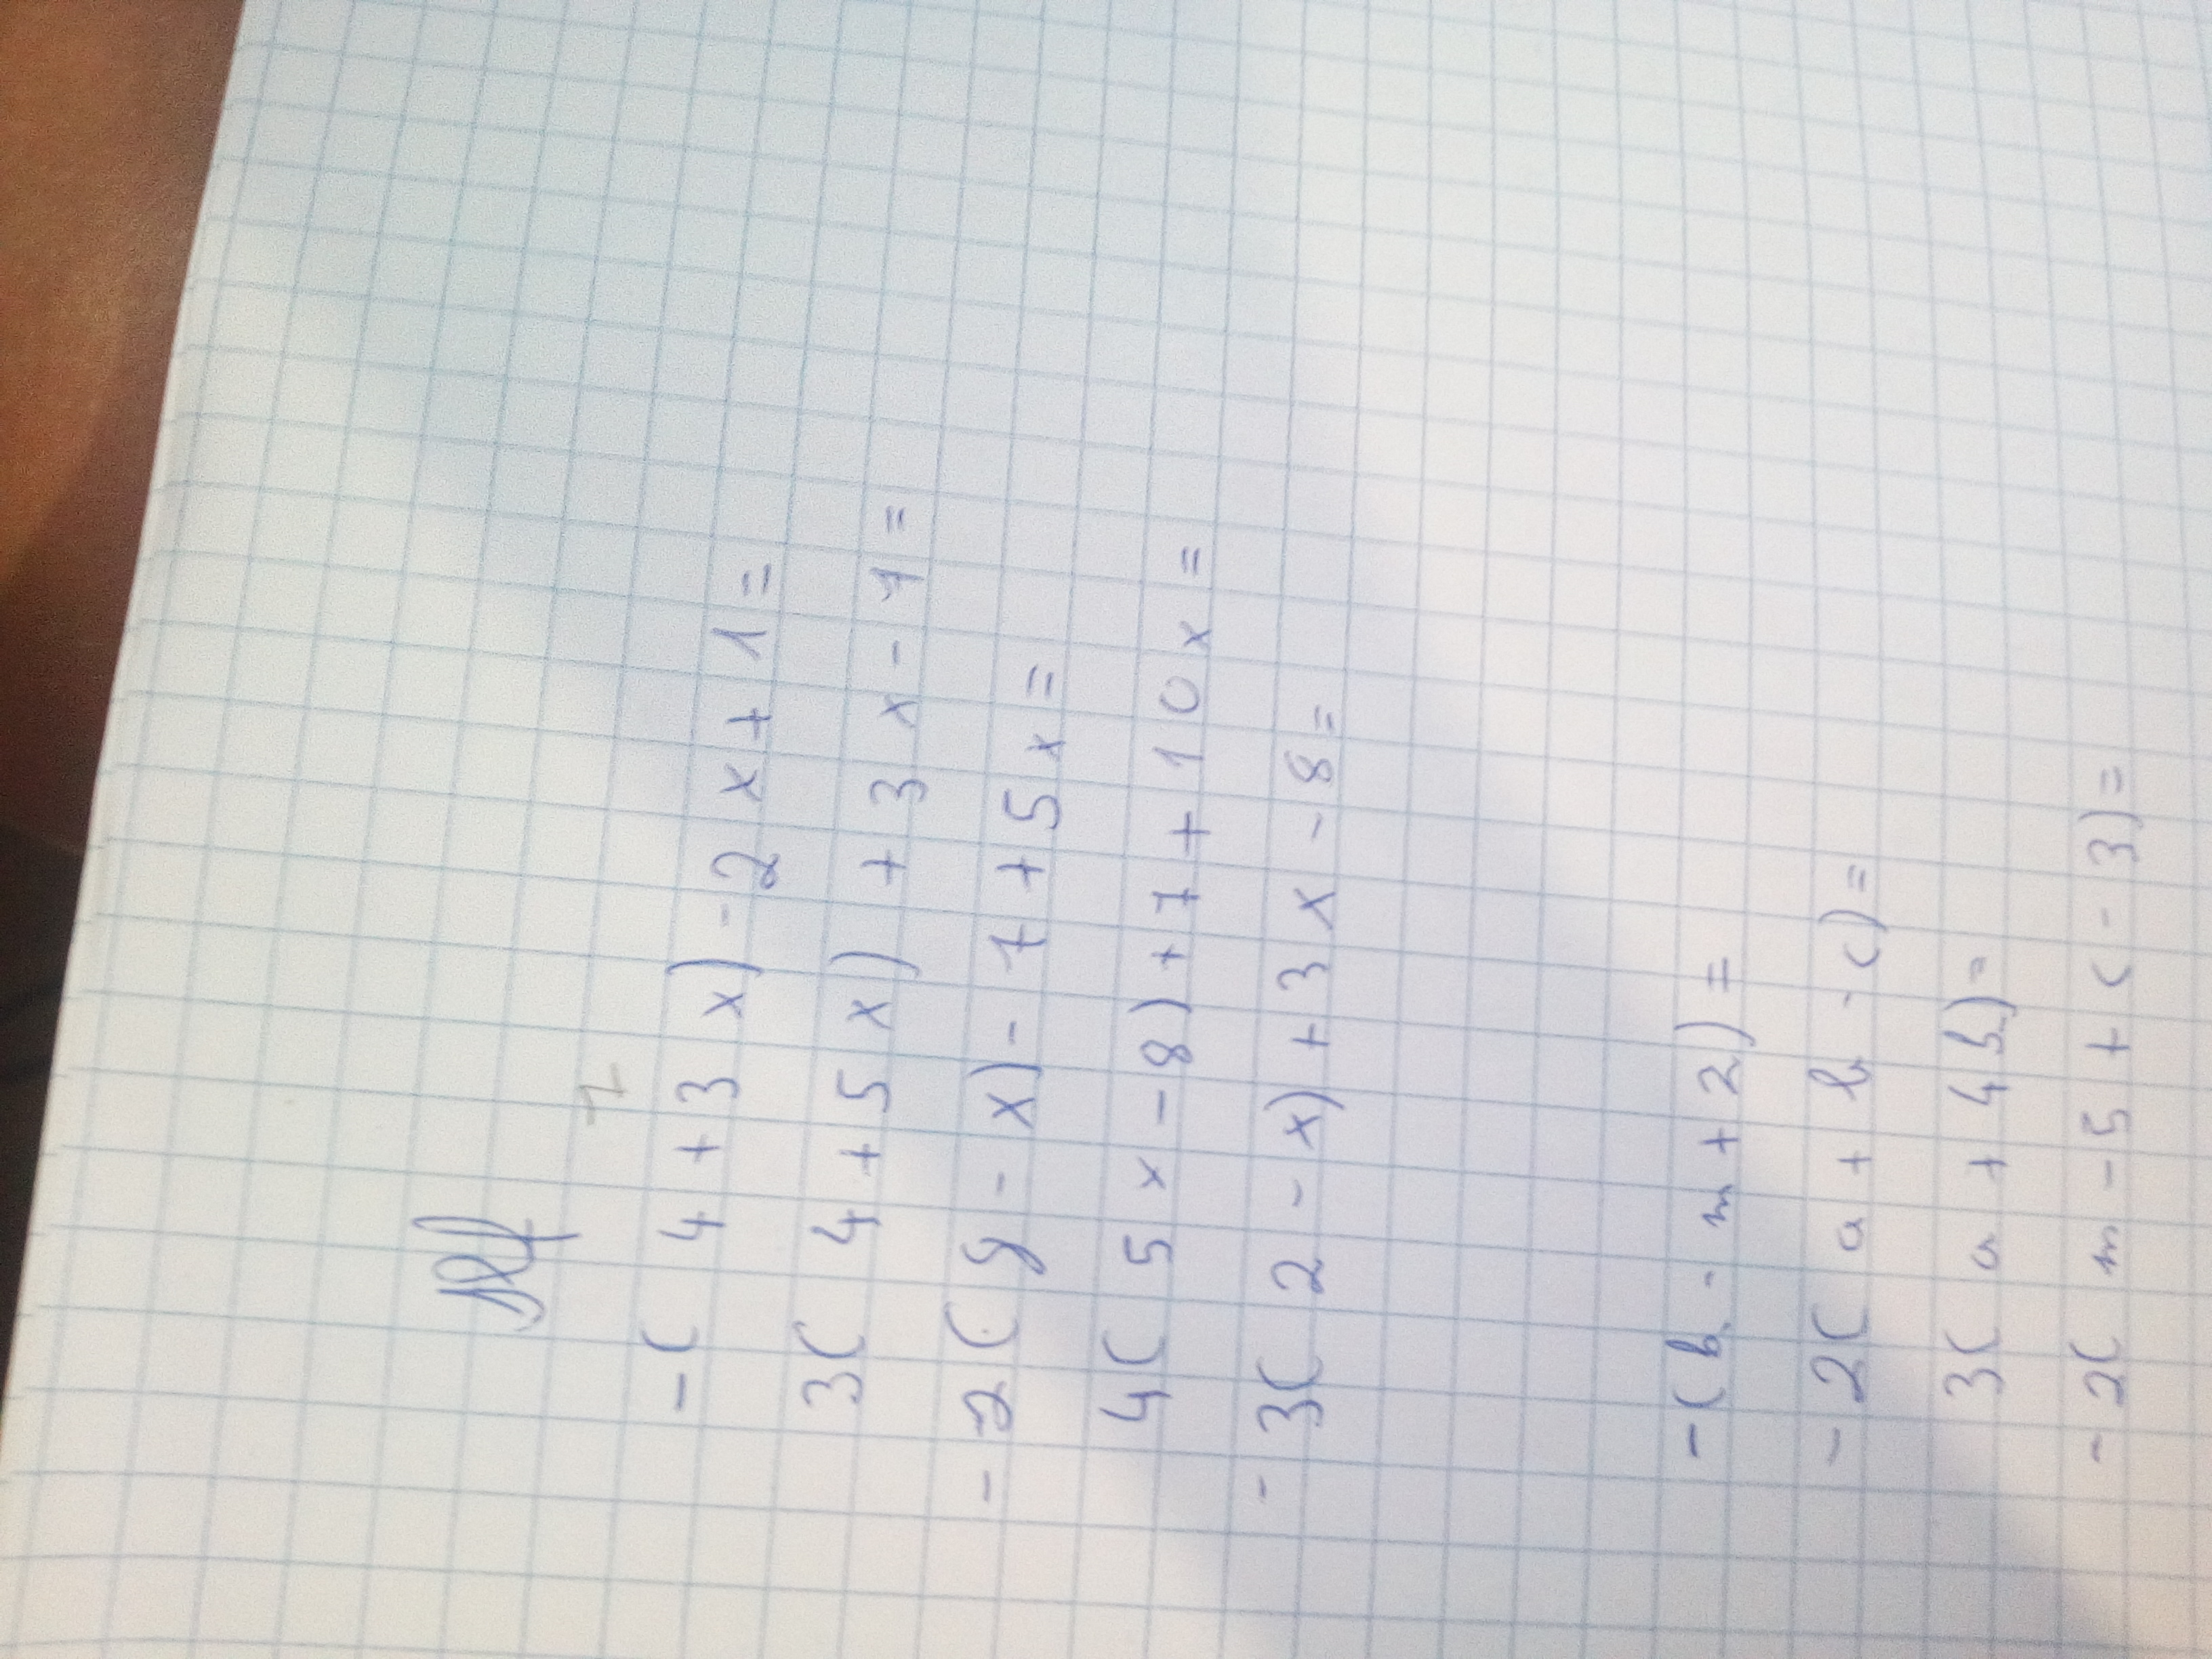 -(4+3x)-2x+1=
3(4+5x)+3x-1=
-2(y-x)-7+5x=
4(5x-8)+7+10x=
-3(2-x)+3x-8=
-(b-m+2)=
-2(a+b-c)=
3(a+4b)=
-2(m-5+(-3)=